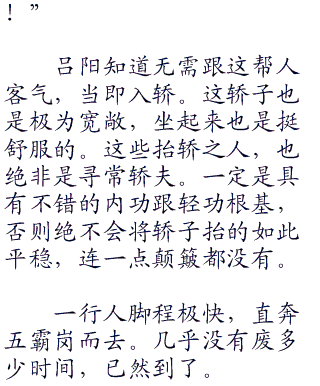 ！”
吕阳知道无需跟这帮人
客气，当即入轿。这轿子也
是极为宽敞，坐起来也是挺
舒服的。这些抬轿之人，也
绝非是寻常轿夫。一定是具
有不错的内功跟轻功根基，
否则绝不会将轿子抬的如此
平稳，连一点颠簸都没有。
一行人脚程极快，直奔
五霸岗而去。几乎没有废多
少时间，已然到了。